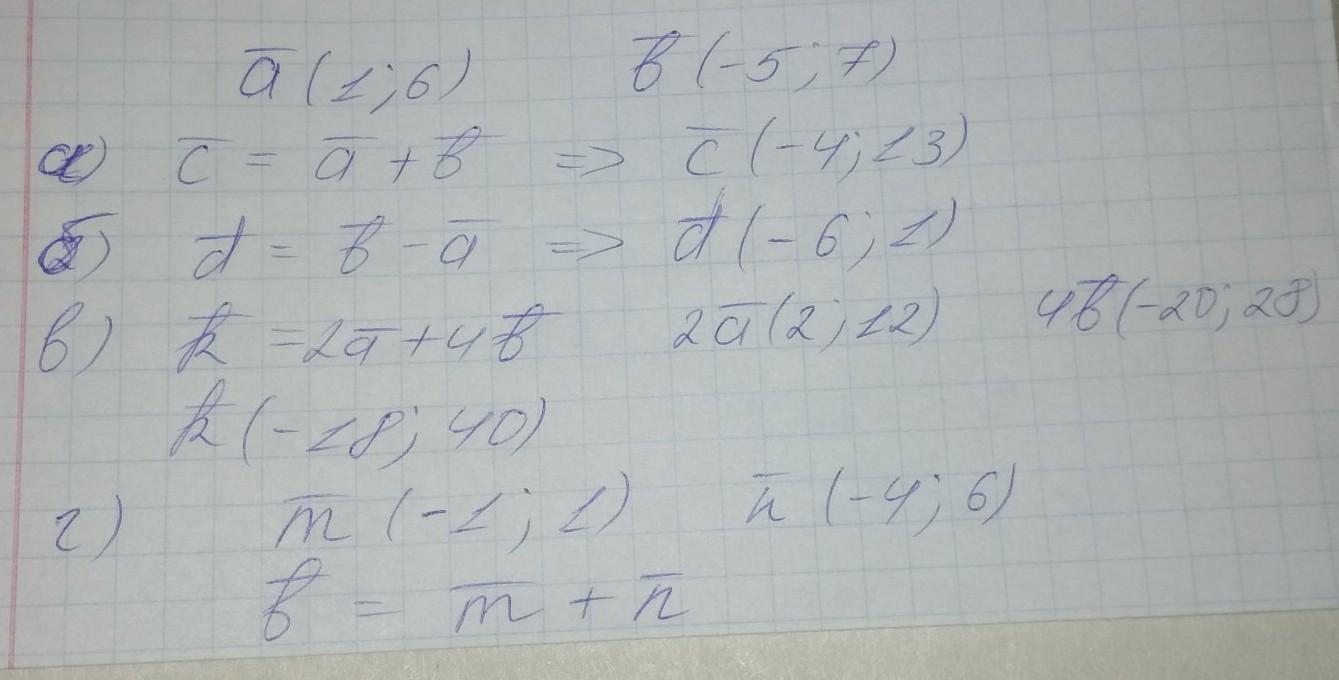 a̅ (1; 6) b̅ (-5; 7)
а) c̅ = a̅ + b̅ => c̅ (-4; 13)
б) d̅ = b̅ - a̅ => d̅ (-6; 1)
в) k̅ = 2a̅ + 4b̅ 2a̅ (2; 12) 4b̅ (-20; 28)
k̅ (-18; 40)
г) m̅ (-1; 1) n̅ (-4; 6)
b̅ = m̅ + n̅